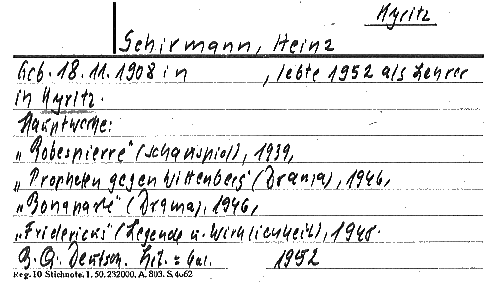 Kyritz
Schirmann, Heinz
Geb. 18.11.1908 in , lebte 1952 als Lehrer
in Kyritz.
Hauptwerke:
„Robespierre" (Schauspiel), 1939,
„Propheten gegen Wittenberg" (Drama), 1946,
„Bonaparte" (Drama), 1946,
„Fridericus" (Legende u. Wirklichkeit), 1948.
B. Q. Deutsch. Lit. = 1952
Reg. 10 Stichnote. 1. 50. 232000. A. 803. S. 4062